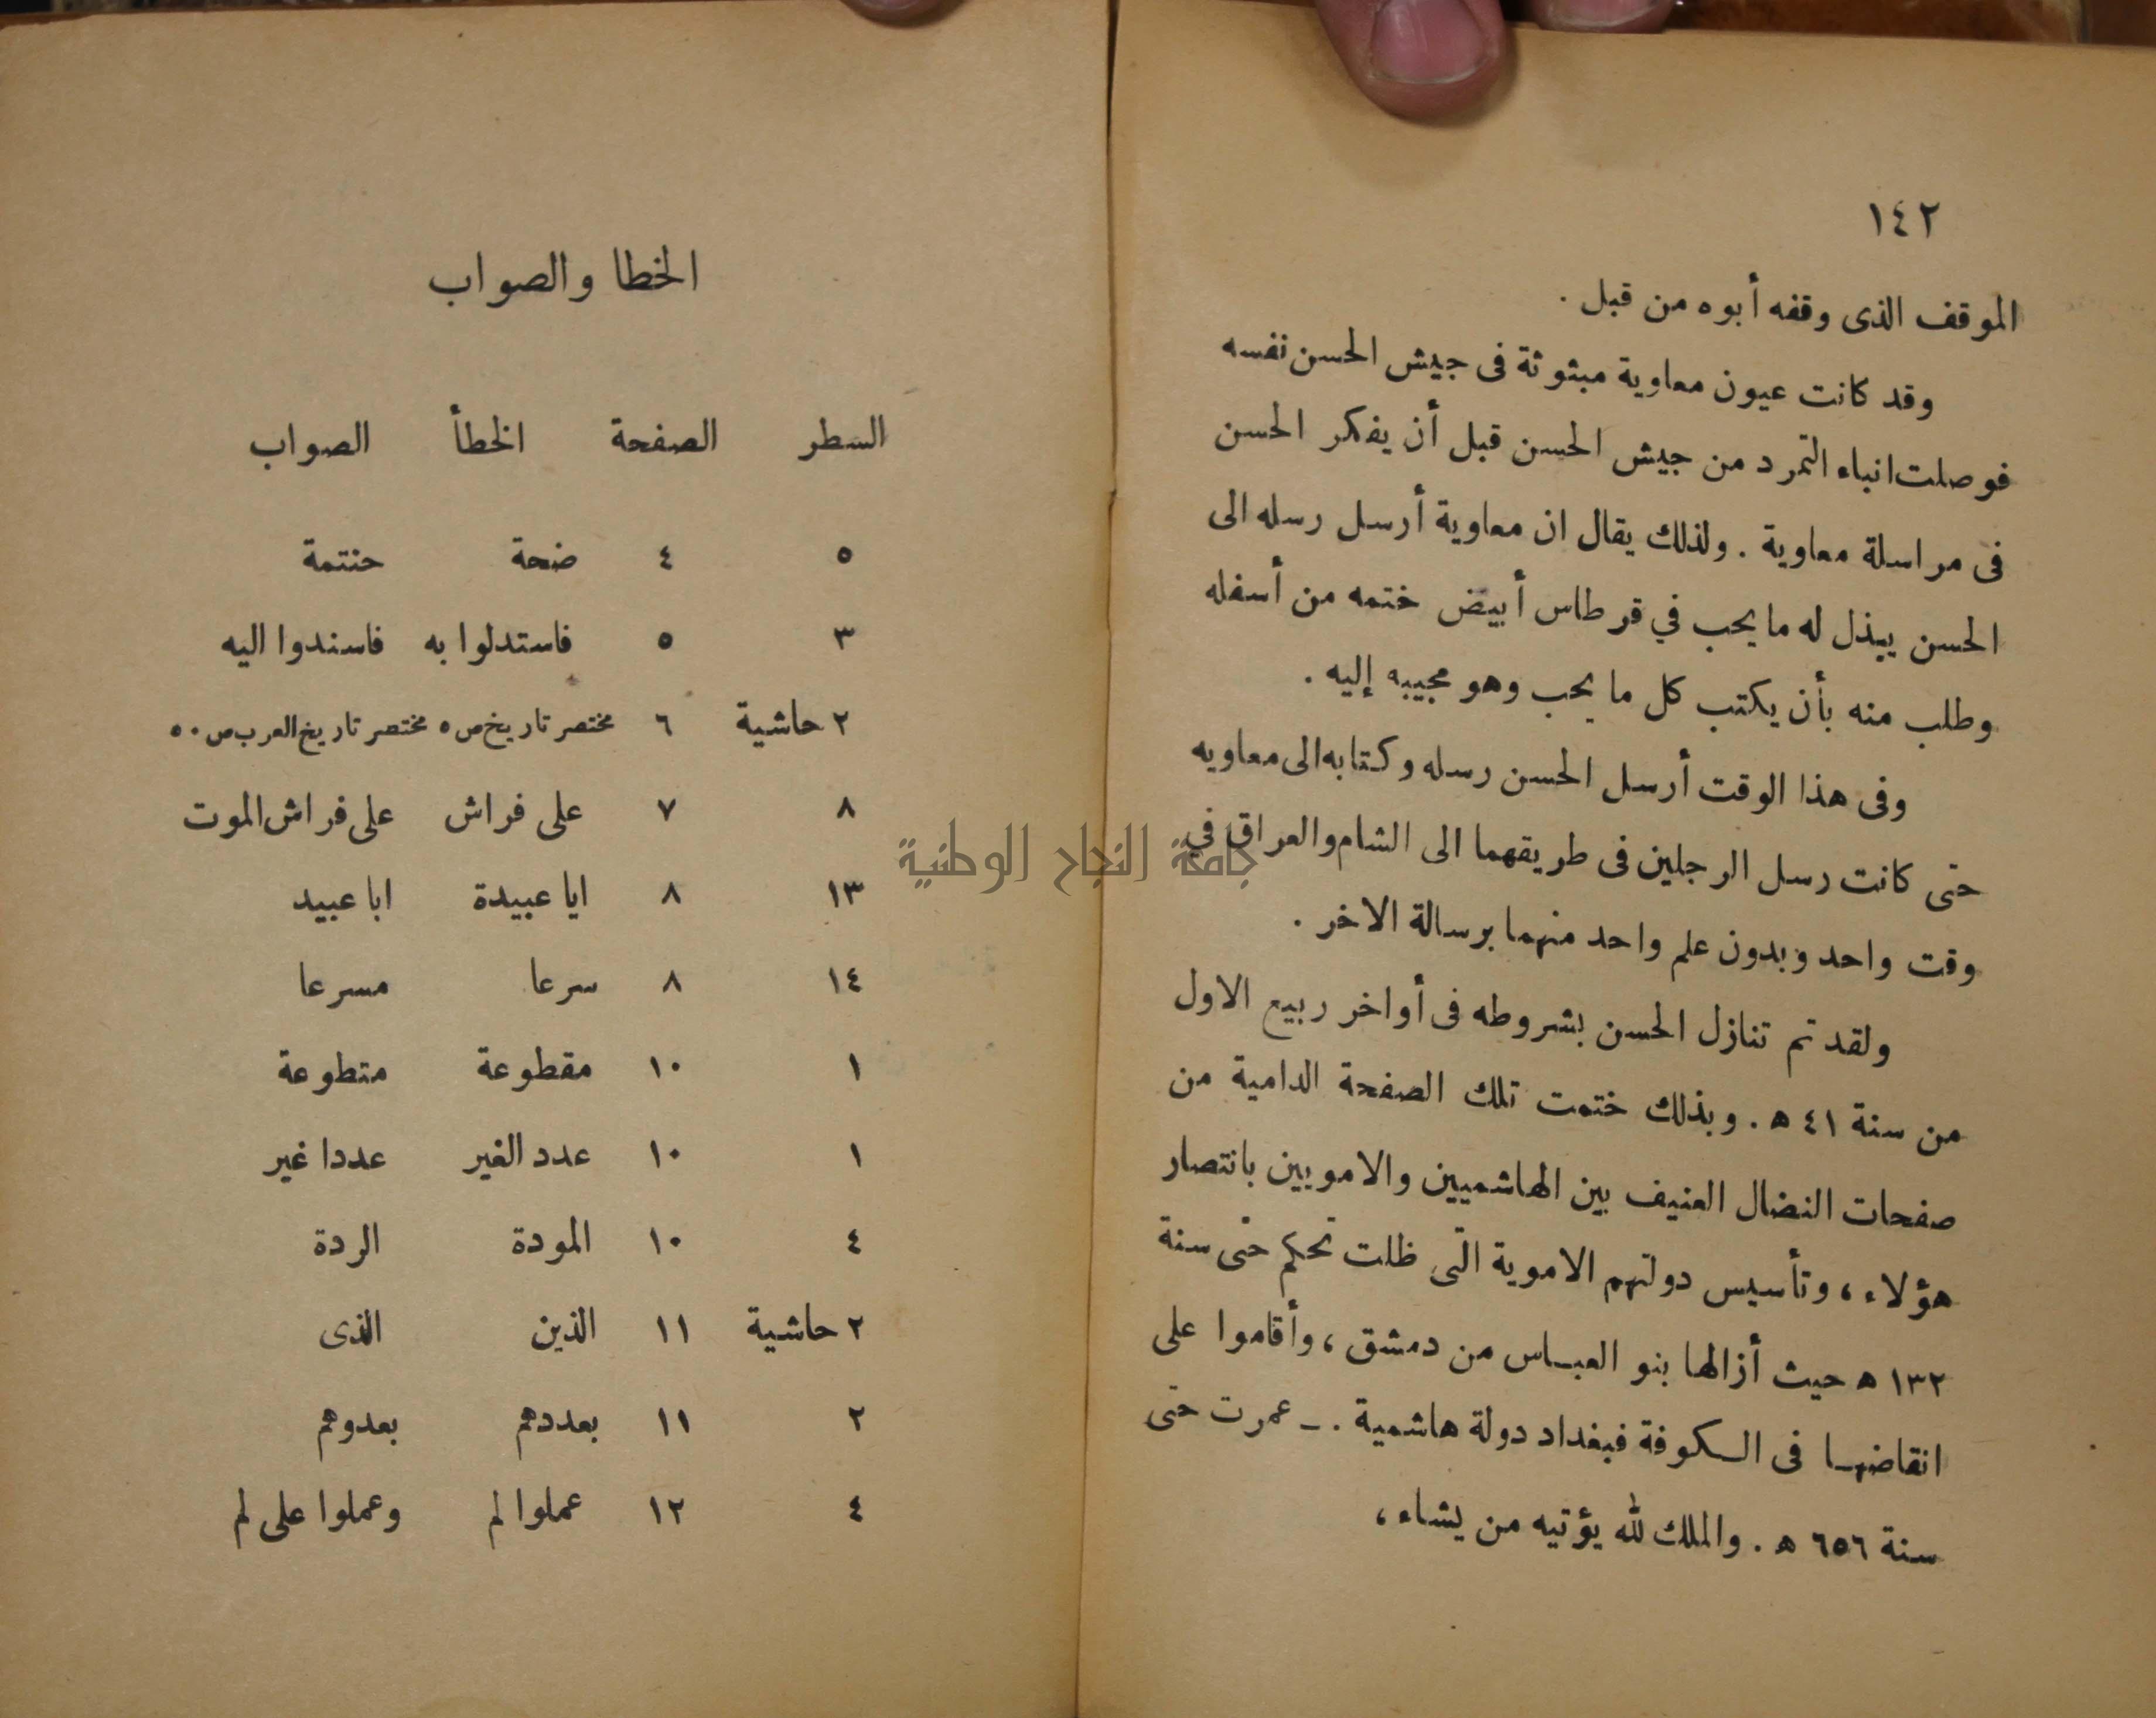 ١٤٢
الموقف الذى وقفه أبوه من قبل .
وقد كانت عيون معاوية مبثوثة فى جيش الحسن نفسه
فوصلت انباء التمرد من جيش الحسن قبل أن يفكر الحسن
فى مراسلة معاوية . ولذلك يقال ان معاوية أرسل رسله الى
الحسن يبذل له ما يحب في قرطاس أبيض ختمه من أسفله
وطلب منه بأن يكتب كل ما يحب وهو مجيبه إليه .
وفى هذا الوقت أرسل الحسن رسله وكتابه الى معاويه
حتى كانت رسل الرجلين فى طريقهما الى الشام والعراق في
وقت واحد وبدون علم واحد منهما برسالة الاخر .
ولقد تم تنازل الحسن بشروطه فى أواخر ربيع الاول
من سنة ٤١ ه . وبذلك ختمت تلك الصفحة الدامية من
صفحات النضال العنيف بين الهاشميين والامويين بانتصار
هؤلاء ، وتأسيس دولتهم الاموية التى ظلت تحكم حتى سنة
١٣٢ ه حيث أزالها بنو العباس من دمشق ، وأقاموا على
انقاضها فى الكوفة فبغداد دولة هاشمية . ـ عمرت حتى
سنة ٦٥٦ ه . والملك لله يؤتيه من يشاء ،
جامعة النجاح الوطنية
الخطا والصواب
السطر الصفحة الخطأ الصواب
٥ ٤ ضحة حنتمة
٣ ٥ فاستدلوا به فاسندوا اليه
٢ حاشية ٦ مختصر تاريخ ص ٥ مختصر تاريخ العرب ص ٥٠
٨ ٧ على فراش على فراش الموت
١٣ ٨ ايا عبيدة ابا عبيد
١٤ ٨ سرعا مسرعا
١ ١٠ مقطوعة متطوعة
١ ١٠ عدد الغير عددا غير
٤ ١٠ المودة الردة
٢ حاشية ١١ الذين الذى
٢ ١١ بعددهم بعدوهم
٤ ١٢ عملوا لم وعملوا على لم